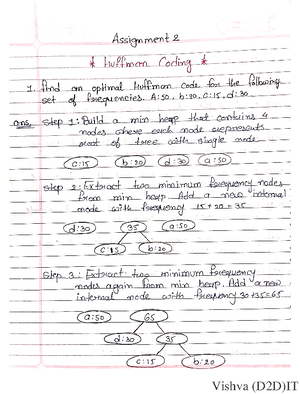 Assignment 2
* Huffman Coding *
1. find an optimal Huffman code for the following
set of frequencies. A:50, b:20, c:15, d:30
ans. Step 1: Build a min heap that contains 4
nodes where each node represents
root of tree with single node
c:15 b:20 d:30 a:50
Step 2: Extract two minimum frequency nodes
from min heap. Add a new internal
node with frequency 15+20=35
d:30 35 a:50
c:15 b:20
Step 3: Extract two minimum frequency
nodes again from min heap. Add a new
internal node with frequency 30+35=65
a:50 65
d:30 35
c:15 b:20
Vishva (D2D)IT